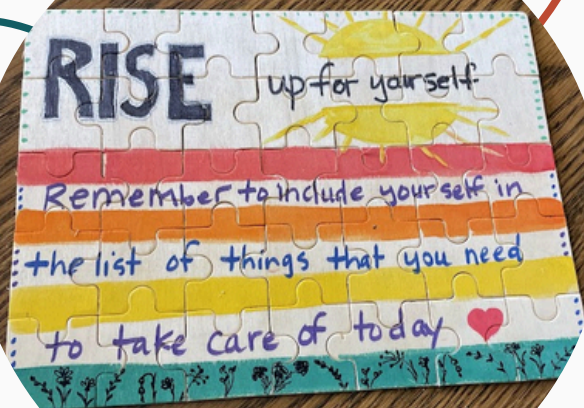 RISE up for yourself
Remember to include yourself in
the list of things that you need
to take care of today